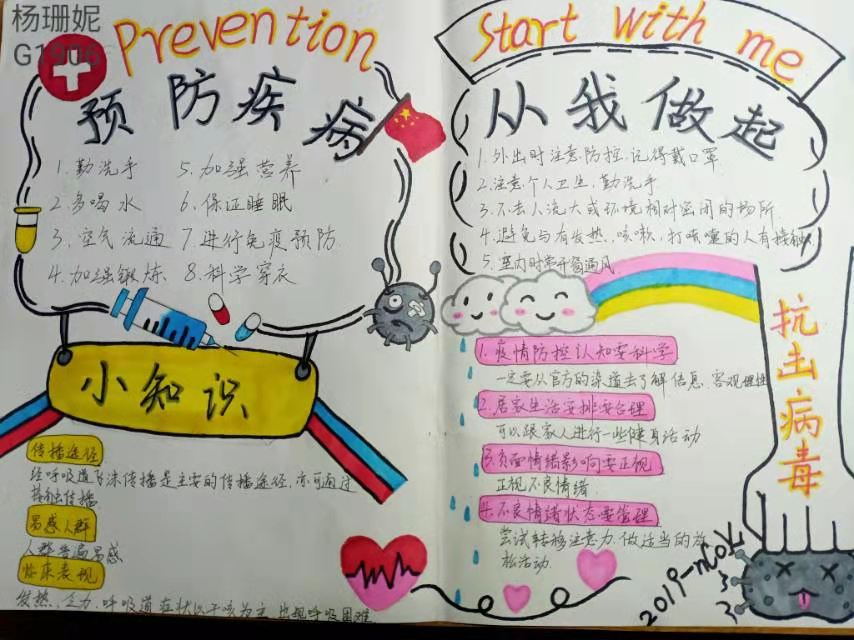 杨珊妮
G1906
Prevention
预防疾病
1.勤洗手 5.加强营养
2.多喝水 6.保证睡眠
3.空气流通 7.进行免疫预防
4.加强锻炼 8.科学穿衣
小知识
传播途径
经呼吸道飞沫传播是主要的传播途径,亦可通过
接触传播
易感人群
人群普遍易感
临床表现
发热、乏力、呼吸道症状以干咳为主,出现呼吸困难
Start with me
从我做起
1.外出时注意防控,记得戴口罩
2.注意个人卫生,勤洗手
3.不去人流大或环境相对密闭的场所
4.避免与有发热、咳嗽、打喷嚏的人有接触
5.室内时常开窗通风
1.疫情防控认知要科学
一定要从官方的渠道去了解信息、客观理性
2.居家生活安排要合理
可以跟家人进行一些健身活动
3.负面情绪影响要正视
正视不良情绪
4.不良情绪状态要管理
尝试转移注意力,做适当的放
松活动
抗击病毒
2019-nCoV